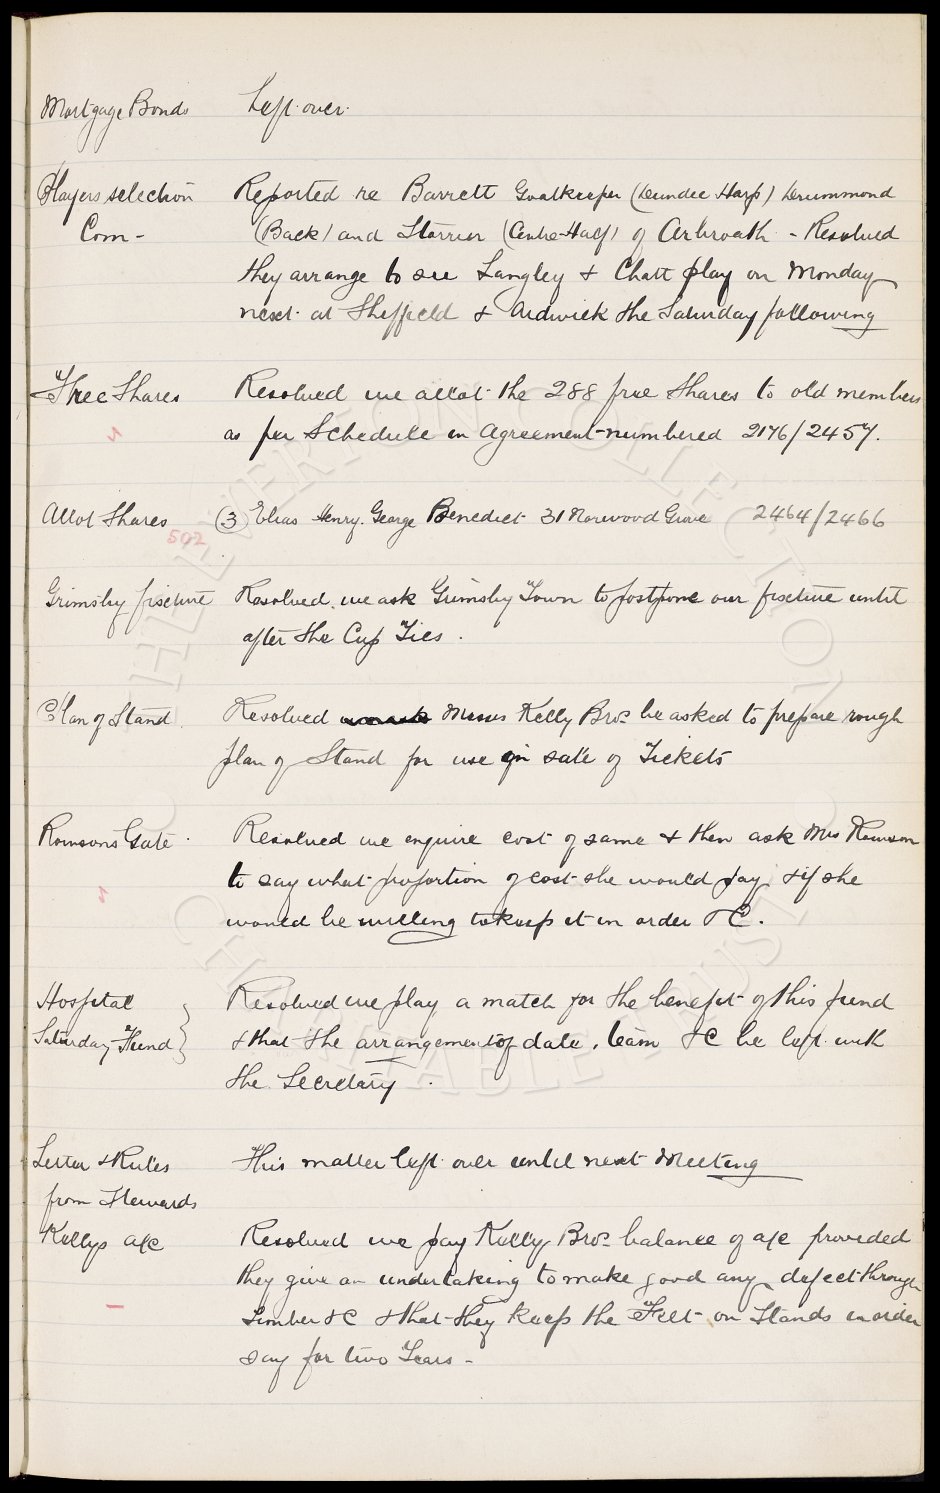 Mortgage Bonds Left over.
Players selection Reported re Barrett Goalkeeper (Dundee Harp) Drummond
Com - (Back) and Storrier (Centre-Half) of Arbroath - Resolved
they arrange to see Langley & Chatt play on Monday
next at Sheffield & Ardwick the Saturday following
Free Shares Resolved we allot the 288 free Shares to old members
as per Schedule in Agreement numbered 2176/2457.
Allot Shares (3) Elias Henry George Benedict 31 Norwood Grove 2464/2466
502
Grimsby fixture Resolved we ask Grimsby Town to postpone our fixture until
after the Cup Ties.
Plan of Stand Resolved Messrs Kelly Bros. be asked to prepare rough
plan of Stand for use in sale of Tickets
Rowsons Gate Resolved we enquire cost of same & then ask Mrs Rowson
to say what proportion of cost she would pay & if she
would be willing to keep it in order &C.
Hospital Resolved we play a match for the benefit of this fund
Saturday Fund } & that the arrangements of date, team &C be left with
the Secretary.
Letter & Rules This matter left over until next Meeting
from Stewards
Kellys a/c Resolved we pay Kelly Bros. balance of a/c provided
they give an undertaking to make good any defect through
Timber &C & that they keep the Felt on Stands in order
say for two Years -
THE EVERTON COLLECTION
CHARITABLE TRUST